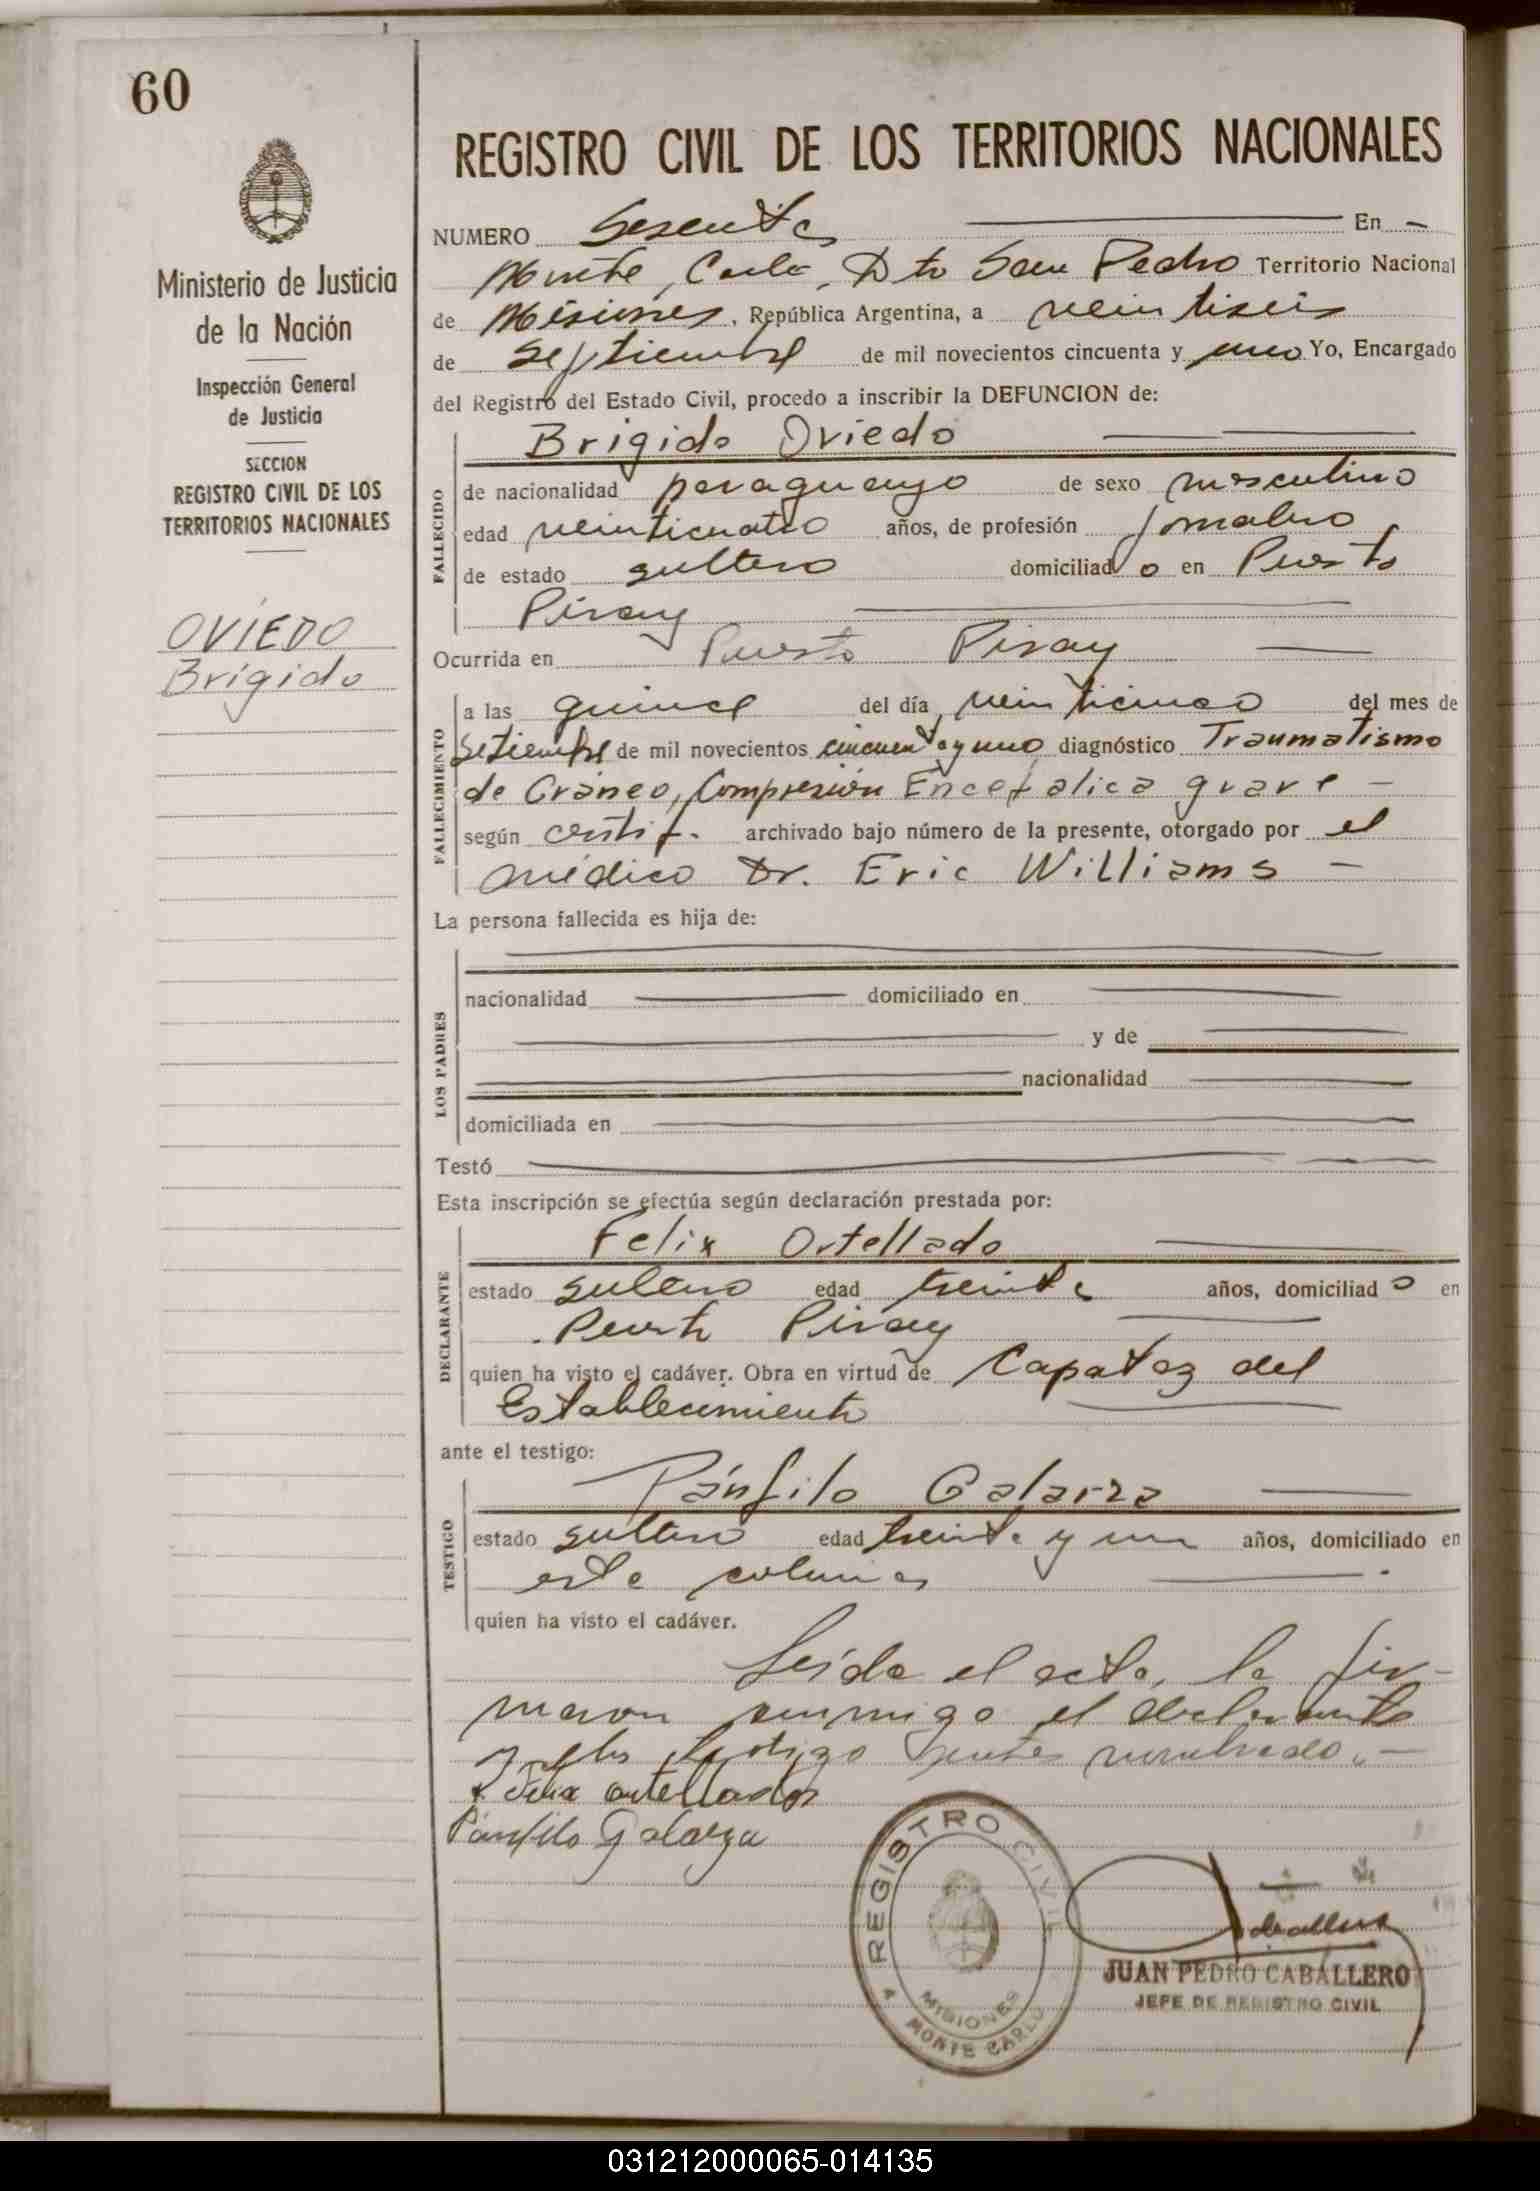 60
Ministerio de Justicia
de la Nación
Inspección General
de Justicia
SECCION
REGISTRO CIVIL DE LOS
TERRITORIOS NACIONALES
OVIEDO
Brigido
REGISTRO CIVIL DE LOS TERRITORIOS NACIONALES
NUMERO Sesenta En
Monte Carlo, Dto San Pedro Territorio Nacional
de Misiones, República Argentina, a veintiseis
de Septiembre de mil novecientos cincuenta y uno Yo, Encargado
del Registro del Estado Civil, procedo a inscribir la DEFUNCION de:
Brigido Oviedo
FALLECIDO
de nacionalidad paraguayo de sexo masculino
edad veinticuatro años, de profesión jornalero
de estado soltero domiciliado en Puerto
Piray
Ocurrida en Puerto Piray
FALLECIMIENTO
a las quince del día veinticinco del mes de
Setiembre de mil novecientos cincuenta y uno diagnóstico Traumatismo
de Cráneo, Compresión Encefalica grave
según certif. archivado bajo número de la presente, otorgado por el
médico Dr. Eric Williams
La persona fallecida es hija de:
LOS PADRES
nacionalidad domiciliado en
y de
nacionalidad
domiciliada en
Testó
Esta inscripción se efectúa según declaración prestada por:
Felix Ortellado
DECLARANTE
estado soltero edad treinta años, domiciliado en
Puerto Piray
quien ha visto el cadáver. Obra en virtud de Capataz del
Establecimiento
ante el testigo:
Pánfilo Galarza
TESTIGO
estado soltero edad treinta y un años, domiciliado en
esta colonia
quien ha visto el cadáver.
Leída el acta, la fir-
maron conmigo el declarante
y el testigo antes nombrado.
Felix ortellados
Pánfilo Galarza
REGISTRO CIVIL
MISIONES
MONTE CARLO
JUAN PEDRO CABALLERO
JEFE DE REGISTRO CIVIL
031212000065-014135